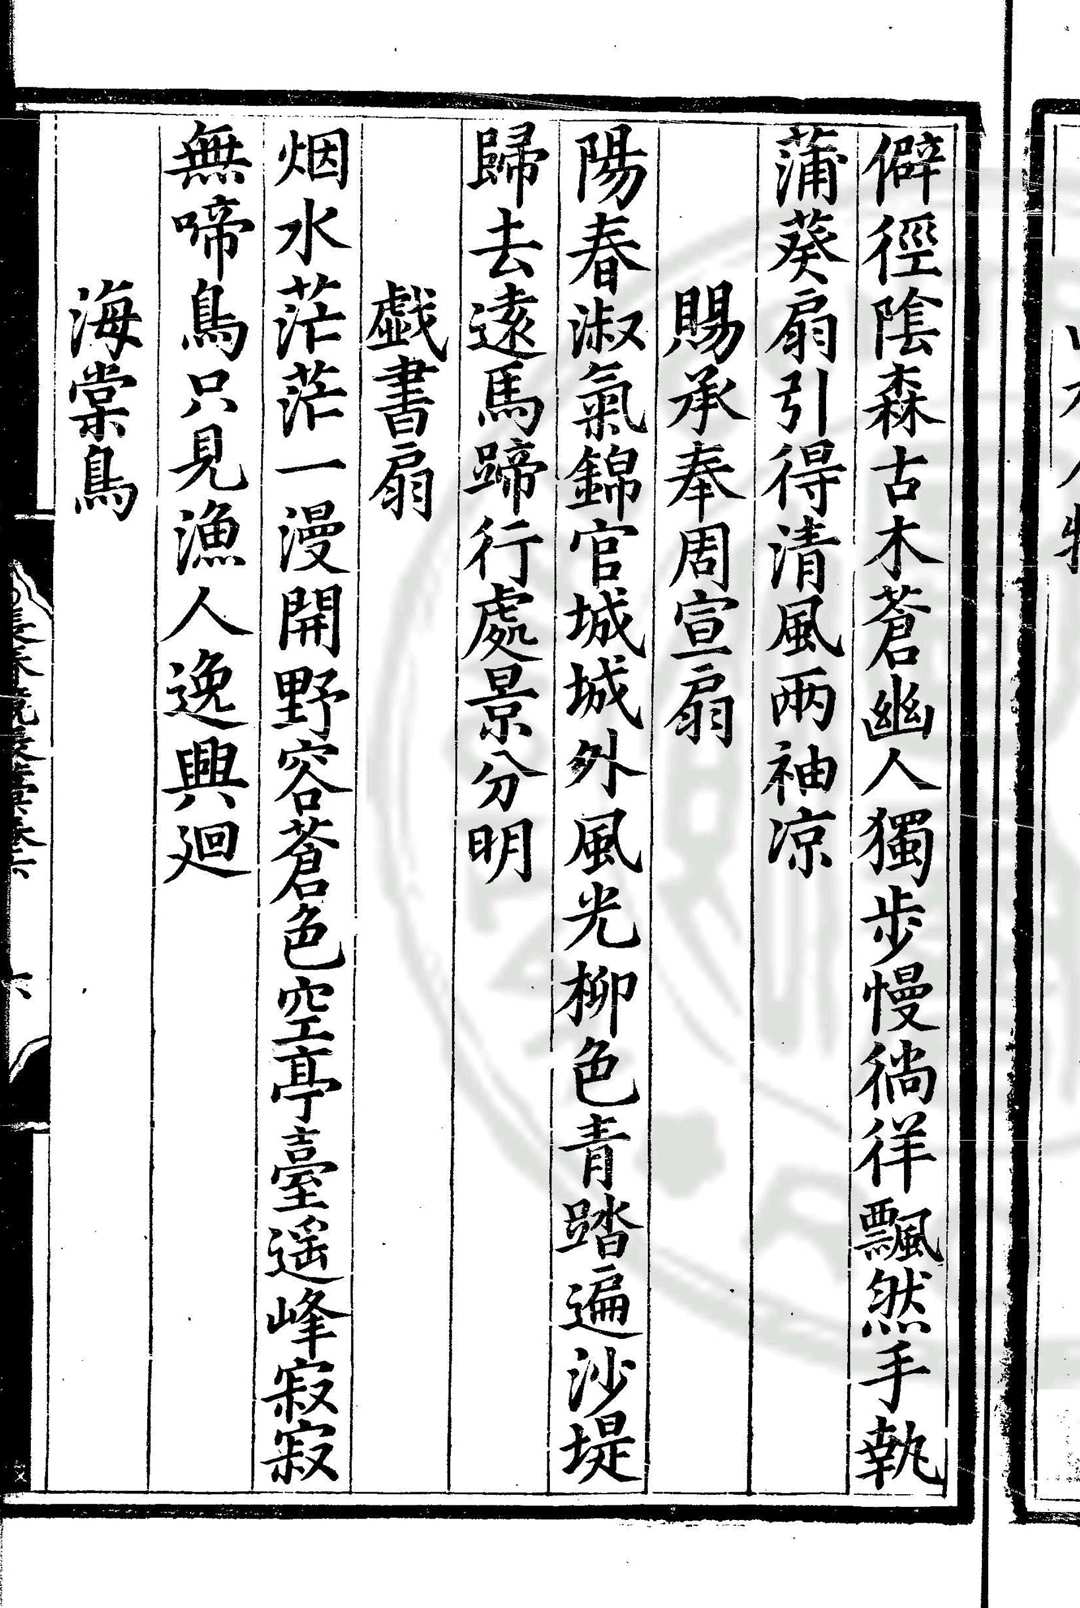 僻徑陰森古木蒼幽人獨步慢徜徉飄然手執
蒲葵扇引得清風兩袖凉
賜承奉周宣扇
陽春淑氣錦官城城外風光柳色青踏遍沙堤
歸去遠馬蹄行處景分明
戯書扇
烟水茫茫一漫開野容蒼色空亭臺遥峰寂寂
無啼鳥只見漁人逸興廻
海棠鳥
六